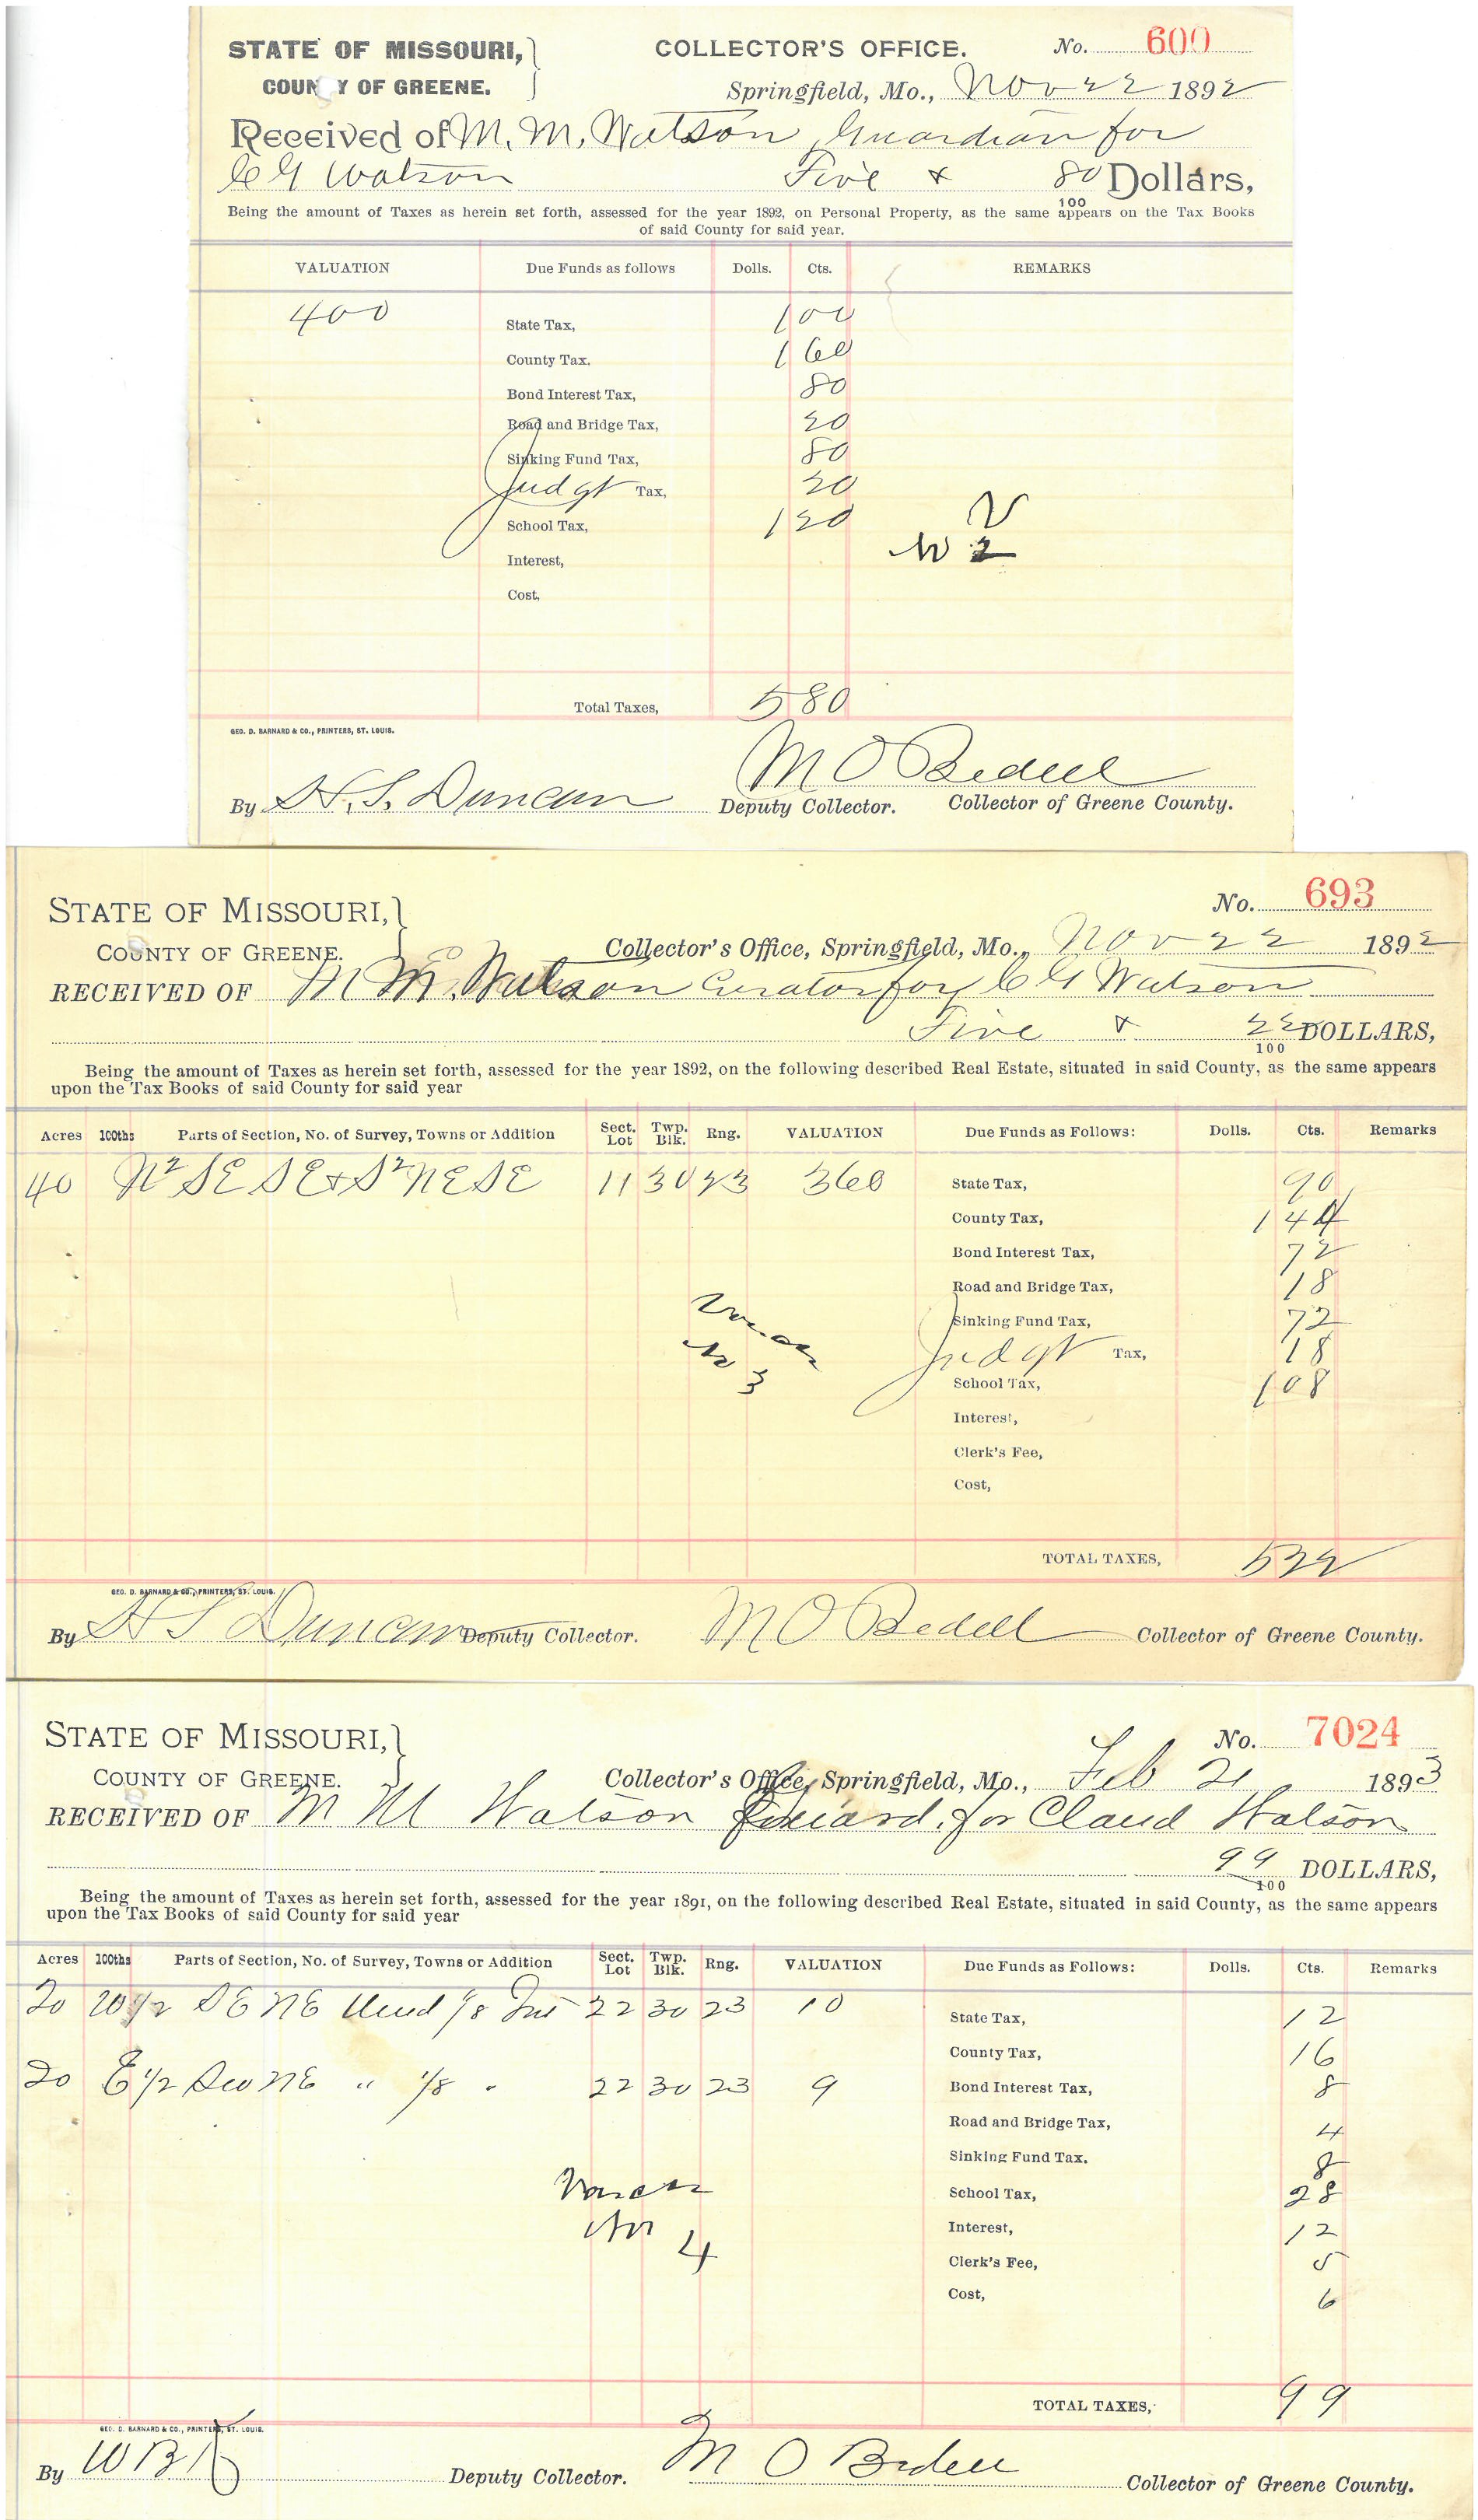 STATE OF MISSOURI, COLLECTOR'S OFFICE. No. 600
COUN Y OF GREENE. Springfield, Mo., Nov 22 1892
Received of M. M. Watson Guardian for
C G Watson Five & 80 Dollars,
100
Being the amount of Taxes as herein set forth, assessed for the year 1892, on Personal Property, as the same appears on the Tax Books
of said County for said year.
VALUATION Due Funds as follows Dolls. Cts. REMARKS
400 State Tax, 1 00
County Tax, 1 60
Bond Interest Tax, 80
Road and Bridge Tax, 20
Sinking Fund Tax, 80
Judgt Tax, 20
School Tax, 1 20 V
Interest, No 2
Cost,
Total Taxes, 5 80
GEO. D. BARNARD & CO., PRINTERS, ST. LOUIS.
M O Bedell
By H. S. Duncan Deputy Collector. Collector of Greene County.
STATE OF MISSOURI, No. 693
COUNTY OF GREENE. Collector's Office, Springfield, Mo., Nov 22 1892
RECEIVED OF M M. Watson Curator for C G Watson
Five & 22 DOLLARS,
100
Being the amount of Taxes as herein set forth, assessed for the year 1892, on the following described Real Estate, situated in said County, as the same appears
upon the Tax Books of said County for said year
Acres 100ths Parts of Section, No. of Survey, Towns or Addition Sect. Lot Twp. Blk. Rng. VALUATION Due Funds as Follows: Dolls. Cts. Remarks
40 N2 SE SE & S2 NE SE 11 30 23 360 State Tax, 90
County Tax, 1 44
Bond Interest Tax, 72
Road and Bridge Tax, 18
Sinking Fund Tax, 72
Judgt Tax, 18
No 3 School Tax, 1 08
Interest,
Clerk's Fee,
Cost,
TOTAL TAXES, 5 22
GEO. D. BARNARD & CO., PRINTERS, ST. LOUIS.
By H S Duncan Deputy Collector. M O Bedell Collector of Greene County.
STATE OF MISSOURI, No. 7024
COUNTY OF GREENE. Collector's Office, Springfield, Mo., Feb 21 1893
RECEIVED OF M M Watson Guard. for Claud Watson
99 DOLLARS,
100
Being the amount of Taxes as herein set forth, assessed for the year 1891, on the following described Real Estate, situated in said County, as the same appears
upon the Tax Books of said County for said year
Acres 100ths Parts of Section, No. of Survey, Towns or Addition Sect. Lot Twp. Blk. Rng. VALUATION Due Funds as Follows: Dolls. Cts. Remarks
20 W 1/2 SE NE Und 1/8 Int 22 30 23 10 State Tax, 12
County Tax, 16
20 E 1/2 SW NE " 1/8 " 22 30 23 9 Bond Interest Tax, 8
Road and Bridge Tax, 4
Sinking Fund Tax. 8
School Tax, 28
No 4 Interest, 12
Clerk's Fee, 5
Cost, 6
TOTAL TAXES, 99
GEO. D. BARNARD & CO., PRINTERS, ST. LOUIS.
By Deputy Collector. M O Bedell Collector of Greene County.